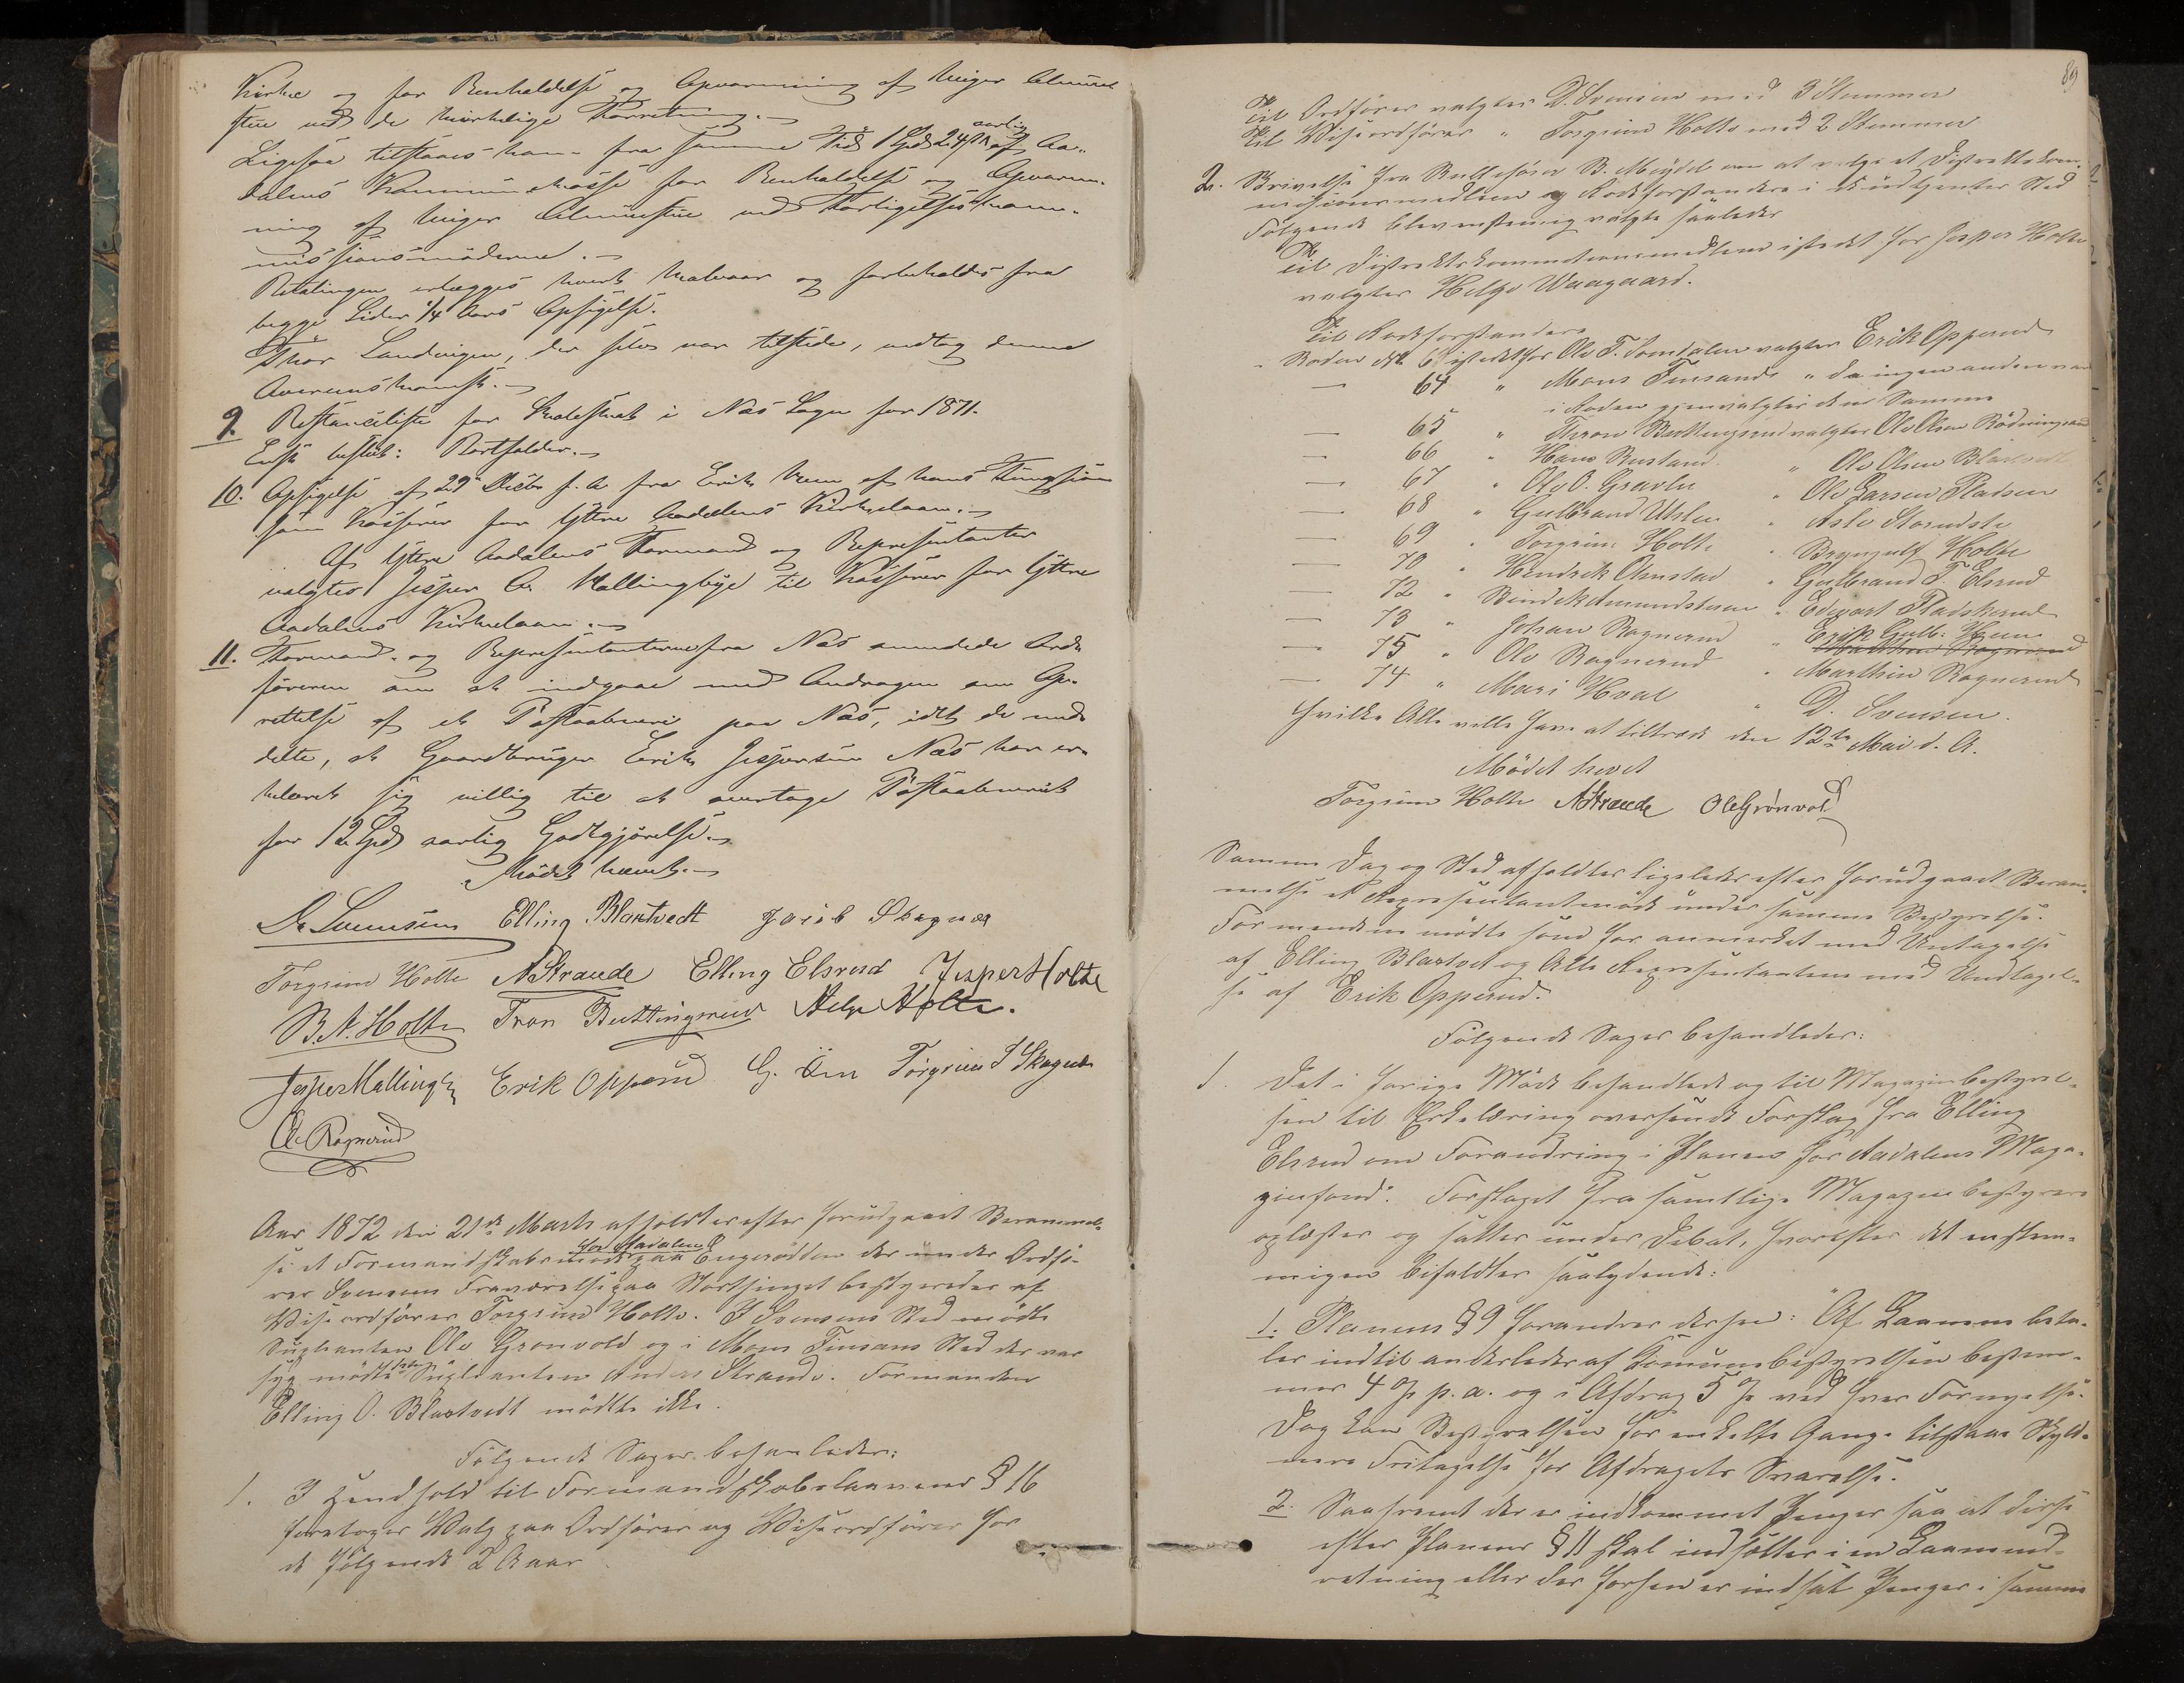 Kirke og for Renholdelse og Opvarmning af Viger Almue
stue ved de kirkelige Forretning.
Ligesaa tilstaaes ham fra samme Tid 1 Spd 24 s aarlig af Aa-
dalens Kommunekasse for Renholdelse og Opvarm-
ning af Viger Almuestue ved Forligelseskom-
missionsmøderne.
Betalingen erlægges hvert Halvaar og forbeholdes fra
begge Sider 1/4 Aars Opsigelse.
Thor Landingen, der selv var tilstede, vedtog denne
Overenskomst.
9. Restanceliste for Skoleskat i Næs Sogn for 1871.
Enst. beslut: Bortfalder.
10. Opsigelse af 29 Decbr f. A. fra Erik Hen af hans Funktion
som Kasserer for Ytre Aadalens Kirkelaan.
Af Ytre Aadalens Formænd og Repræsentanter
valgtes Jesper A. Hallingbye til Kasserer for Ytre
Aadalens Kirkelaan.
11. Formænd og Repræsentanterne fra Næs anmodede Ord-
føreren om at indgaae med Andragen om Op-
rettelse af et Postaabneri paa Næs, idet de med-
delte, at Gaardbruger Erik Jespersen Næs har er-
klæret sig villig til at overtage Postaabneriet
for 12 Spd aarlig Godtgjørelse.
Mødet hævet.
D. Svensen Elling Blaktvedt Jacob Skagnæs
Torgrim Holte A Strande Elling Elsrud Jesper Holte
B. A. Holte Tron Buttingsrud Helge Holte.
Jesper Hallingby Erik Opperud G. Torgrim T Skagnæs
Ole Ragnerud
Aar 1872 den 21de Marts afholdtes efter forudgaaet Berammel-
se et Formandskabsmøde for Aadalen paa Engerodden der under Ordfø-
rer Svensens Fraværelse paa Storthinget bestyredes af
Viseordfører Torgrim Holte. I Svensens Sted mødte
Supleanten Ole Grønvold og i Mons Finsans Sted der var
syg mødte Supleanten Anders Strande. Formanden
Elling O. Blaktvedt mødte ikke.
Følgende Sager behanledes:
1. I Hendhold til Formandskabslovens § 16
foretoges Valg paa Ordfører og Viseordfører for
de følgende 2 Aaar
89
Til Ordfører valgtes D. Svensen med 3 Stemmer
Til Viseordfører " Torgrim Holte med 2 Stemmer
2. Skrivelse fra Rulleføreren B. Meydel om at vælge et Distriktskom-
misionsmedlem og Rodeforstandere i de udtjentes Sted
Følgende blev enstemig valgte saaledes
Til Distriktskommisionsmedlem istedet for Jesper Holte
valgtes Helge Waagaard.
Til Rodeforstandere
Roden No 6 istedetfor Ole T. Somdalen valgtes Erik Opperud
— 64 " Mons Finsand " da ingen anden var
i Roden gjenvalgtes den Samme
— 65 " Thron Buttingsrud valgtes Ole Olsen Rødningsand
— 66 " Hans Bustand " Ole Olsen Blaktvedt
— 67 " Ole O. Gravli " Ole Larsen Pladsen
— 68 " Gulbrand Uhlen " Asle Storudste
— 69 " Torgrim Holte " Brynjulf Holte
— 70 " Hendrik Elmstad " Gulbrand T. Elsrud
— 72 " Bendik Amundsteen " Edvart Pladserud
— 73 " Johan Ragnerud " Erik Gulb. Hen
— 75 " Ole Ragnerud " Marthin Ragnerud
— 74 " Mari Hval " D. Svensen.
Hvilke Alle ville have at tiltræde den 12te Mai d. A.
Mødet hevet
Torgrim Holte A Strande Ole Grønvold
Samme Dag og Sted afholdtes ligeledes efter forudgaaet Beram-
melse et Representantmøde under samme Bestyrelse.
Formendene mødte som før anmerket med Untagelse
af Elling Blaktvet og Alle Representantene med Undtagel-
se af Erik Opperud.
Følgende Sager behandledes:
1 Det i forige Møde behandlede og til Magazinbestyrel-
sen til Erkelæring oversendte Forslag fra Elling
Elsrud om Forandring i Planen for Aadalens Maga-
zinfond. Forslaget fra samtlige Magazinbestyrere
oplæstes og sattes under Debat, hvorefter det enstem-
migen bifaldtes saalydende:
1. Planens § 9 forandres dersen: "Af Laanene beta-
les indtil anderledes af Komunebestyrelsen bestem-
mes 4 % p. a. og i Afdrag 5 % ved hver Fornyelse.
Dog kan Bestyrelsen for enkelte Gange tilstaae Skyld-
nere Fritagelse for Afdragets Svarelse.
2. Saafremt der er indkommet Penger saa at disse
efter Planens § 11 skal indsættes i en Laanind-
retning eller der forhen er indsat Penger i samme